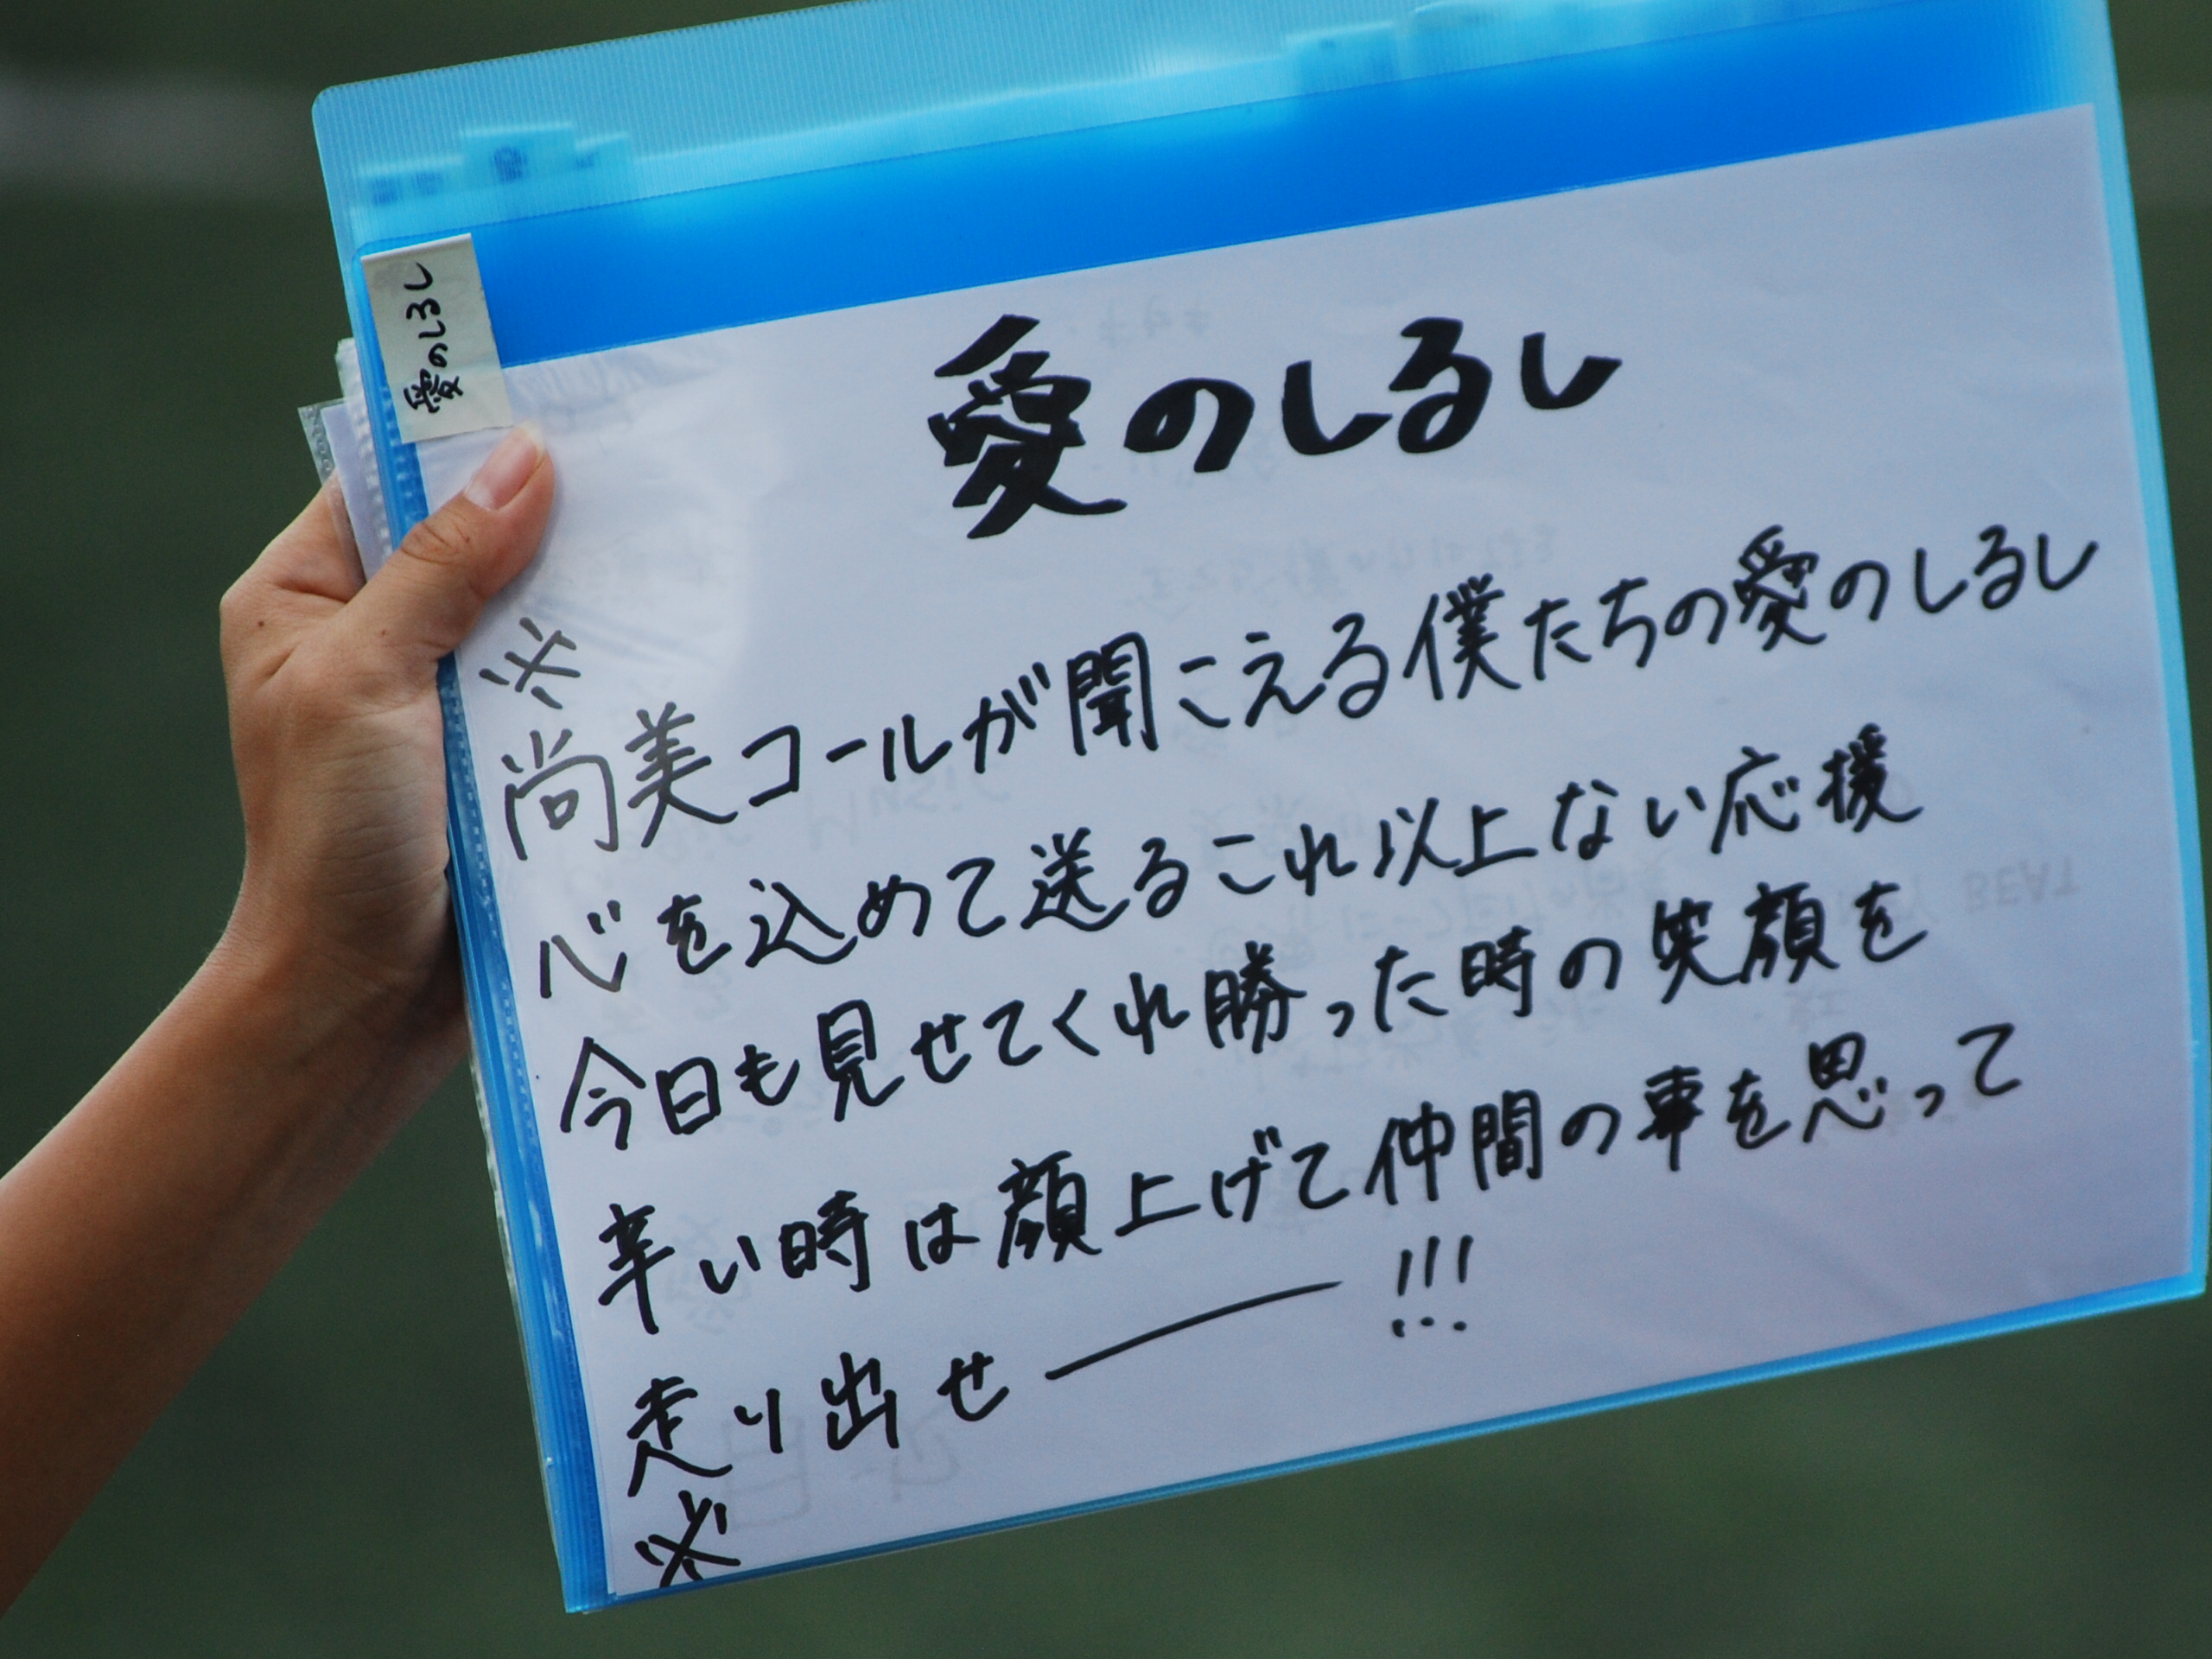 愛のしるし
愛のしるし
※
尚美コールが聞こえる僕たちの愛のしるし
心を込めて送るこれ以上ない応援
今日も見せてくれ勝った時の笑顔を
辛い時は顔上げて仲間の事を思って
走り出せ――!!!
※